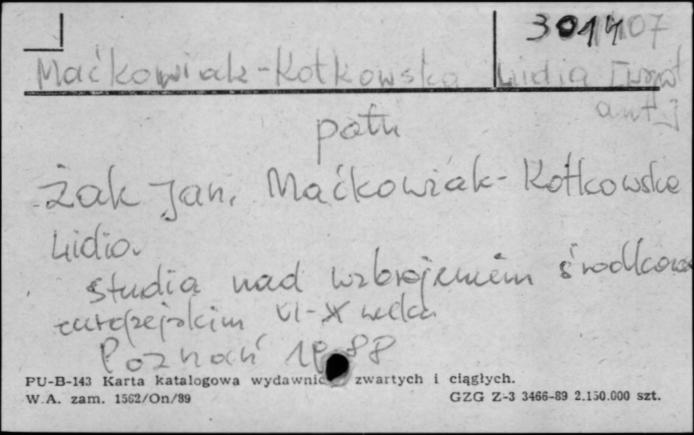 301407
Maćkowiak-Kotkowska Lidia
patrz
Żak Jan, Maćkowiak-Kotkowska
Lidia.
Studia nad uzbrojeniem środkowo
europejskim VI-X wieku
Poznań 1988
PU-B-143 Karta katalogowa wydawnic zwartych i ciągłych.
W.A. zam. 1562/On/89 GZG Z-3 3466-89 2.150.000 szt.